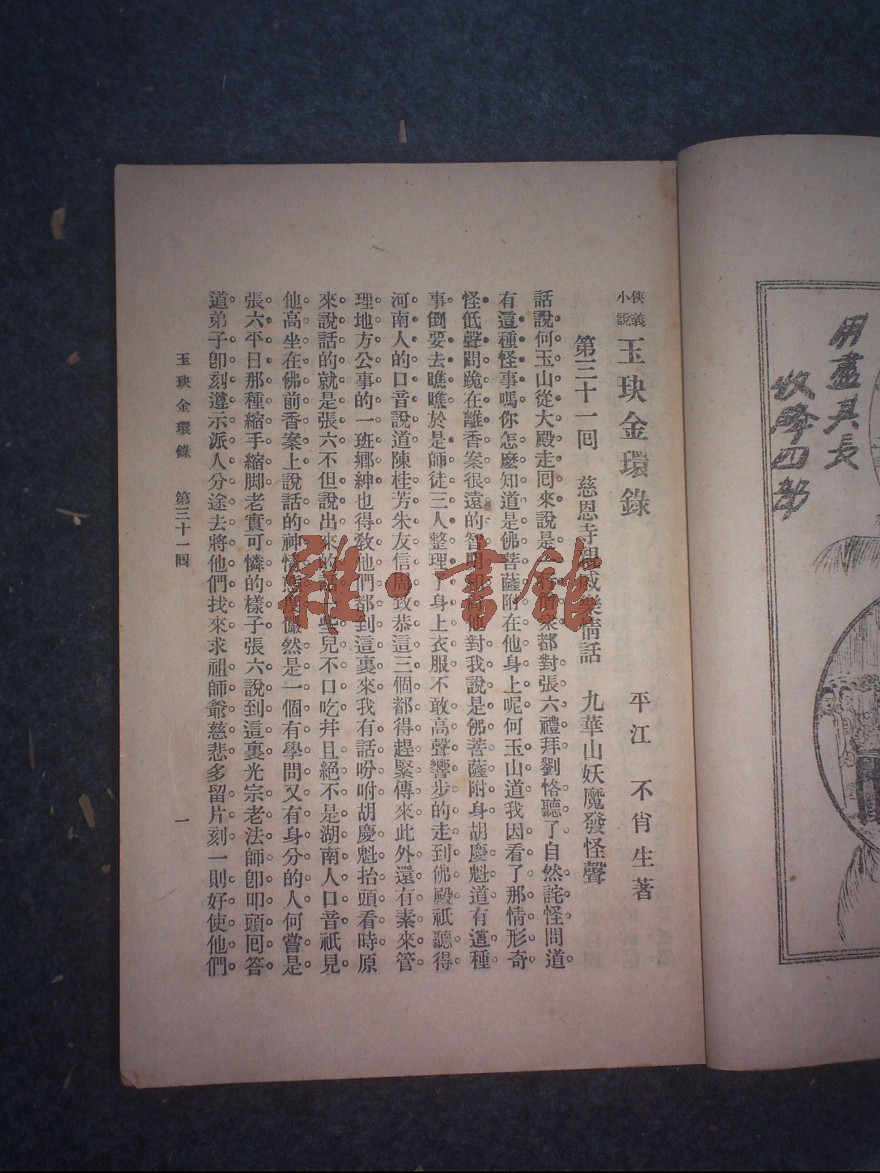 用盡其長
四部
俠義
小說
玉玦金環錄
平江 不肖生著
第三十一回 慈恩寺 戚樂情話 九華山妖魔發怪聲
話說何玉山從大殿走回來說是 都對張六禮拜劉恪聽了自然詫怪問道
有這種怪事嗎你怎麼知道是佛菩薩附在他身上呢何玉山道我因看了那情形奇
怪低聲問跪在離香案很遠的智明 他對我說是佛菩薩附身胡慶魁道有這種
事倒要去瞧瞧於是師徒三人整理了身上衣服不敢高聲響步的走到佛殿祇聽得
河南人的口音說道陳桂芳朱友信周致恭這三個都得趕緊傳來此外還有素來管
理地方公事的一班鄉紳也得教他們都到這裏來我有話吩咐胡慶魁抬頭看時原
來說話的就是張六不但說出來的話 些兒不口吃幷且絕不是湖南人口音祇見
他高坐在佛前香案上說話的神情態度儼然是一個有學問又有身分的人何嘗是
張六平日那種縮手縮脚老實可憐的樣子張六說到這裏光宗老法師卽叩頭回答
道弟子卽刻遵示派人分途去將他們找來求祖師爺慈悲多留片刻一則好使他們
玉玦金環錄 第三十一回 一
雅·書館